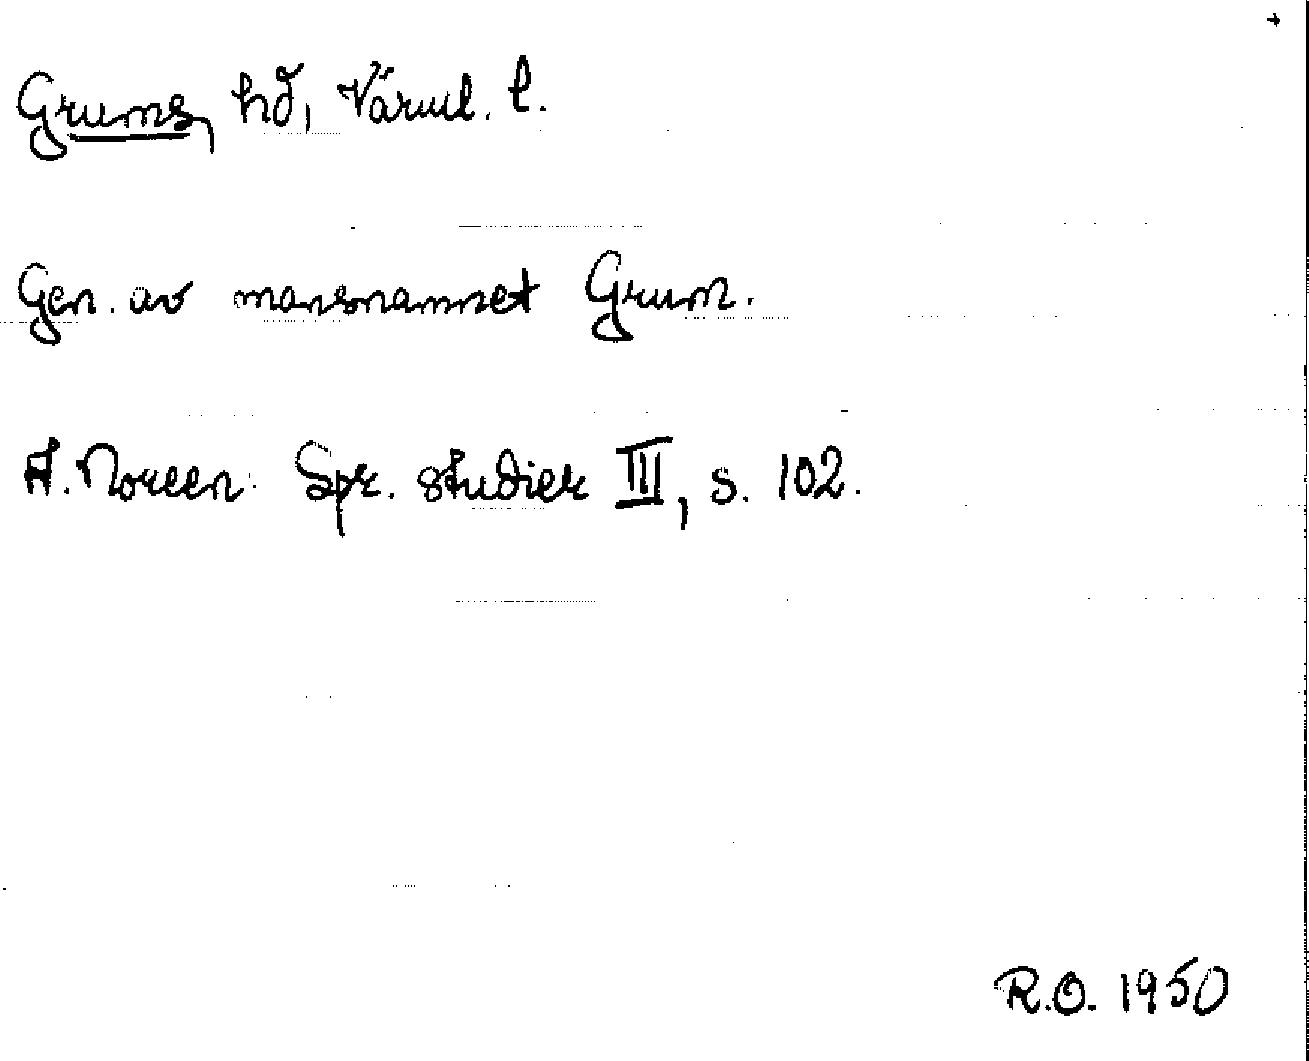 Grums, hd, Värml. l.
Gen. av mansnamnet Grum.
A. Noreen. Spr. studier III, s. 102.
R.O. 1950